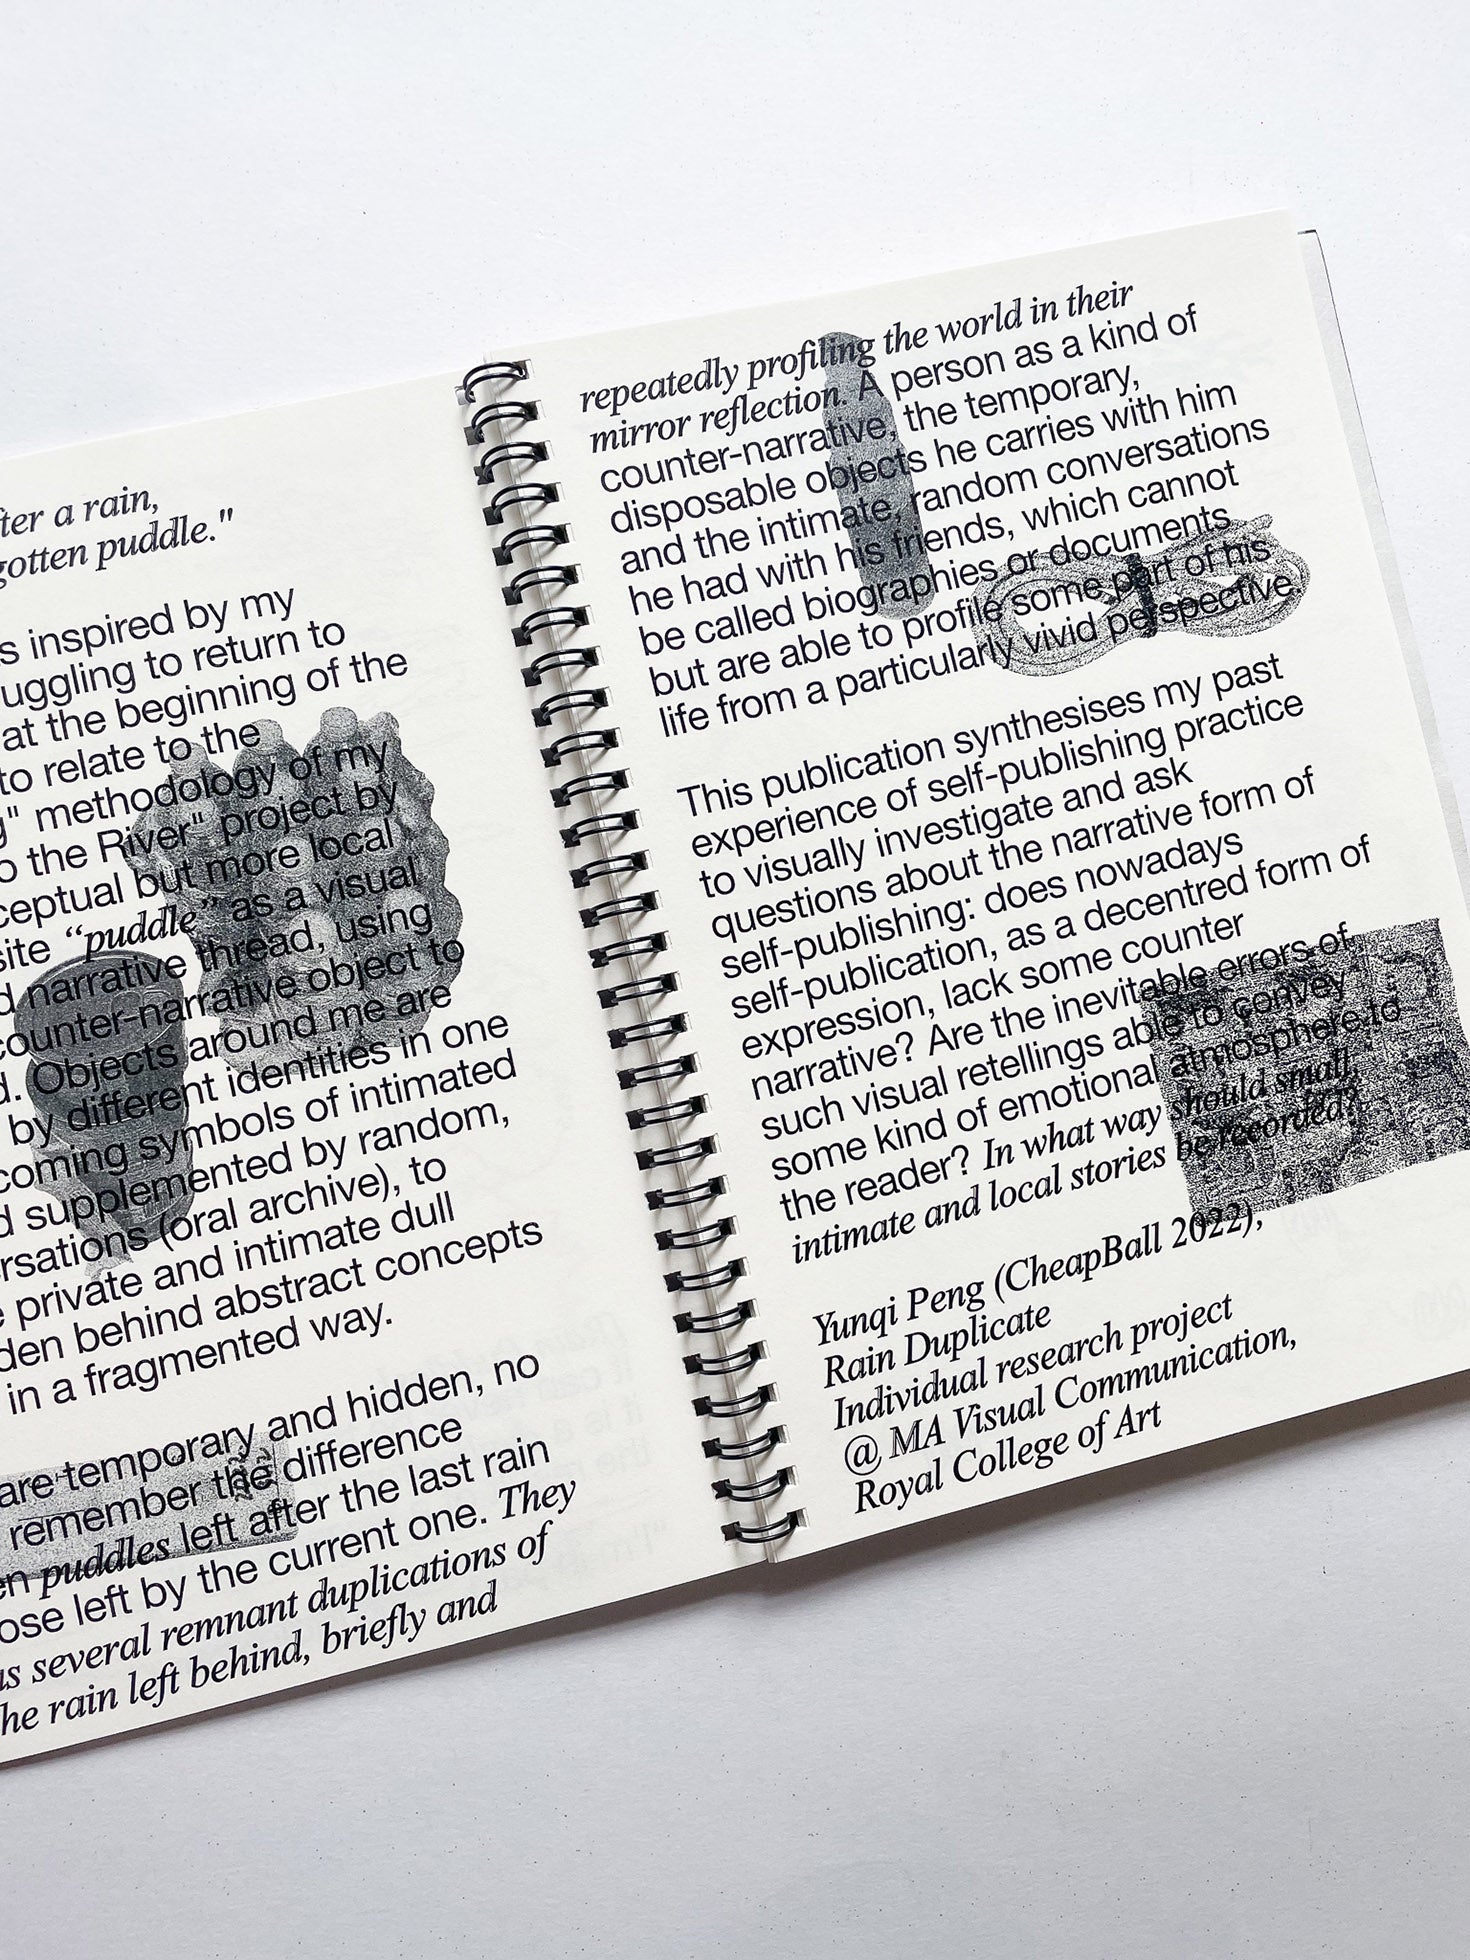 a rain,
puddle."
inspired by my
to return to
at the beginning of the
to relate to the
methodology of my
the River" project by
but more local
“puddle” as a visual
narrative thread, using
counter-narrative object to
Objects around me are
by different identities in one
symbols of intimated
supplemented by random,
(oral archive), to
private and intimate dull
behind abstract concepts
in a fragmented way.
are temporary and hidden, no
remember the difference
puddles left after the last rain
left by the current one. They
several remnant duplications of
rain left behind, briefly and
repeatedly profiling the world in their
mirror reflection. A person as a kind of
counter-narrative, the temporary,
disposable objects he carries with him
and the intimate, random conversations
he had with his friends, which cannot
be called biographies or documents
but are able to profile some part of his
life from a particularly vivid perspective.
This publication synthesises my past
experience of self-publishing practice
to visually investigate and ask
questions about the narrative form of
self-publishing: does nowadays
self-publication, as a decentred form of
expression, lack some counter
narrative? Are the inevitable errors of
such visual retellings able to convey
some kind of emotional atmosphere to
the reader? In what way should small,
intimate and local stories be recorded?
Yunqi Peng (CheapBall 2022),
Rain Duplicate
Individual research project
@ MA Visual Communication,
Royal College of Art